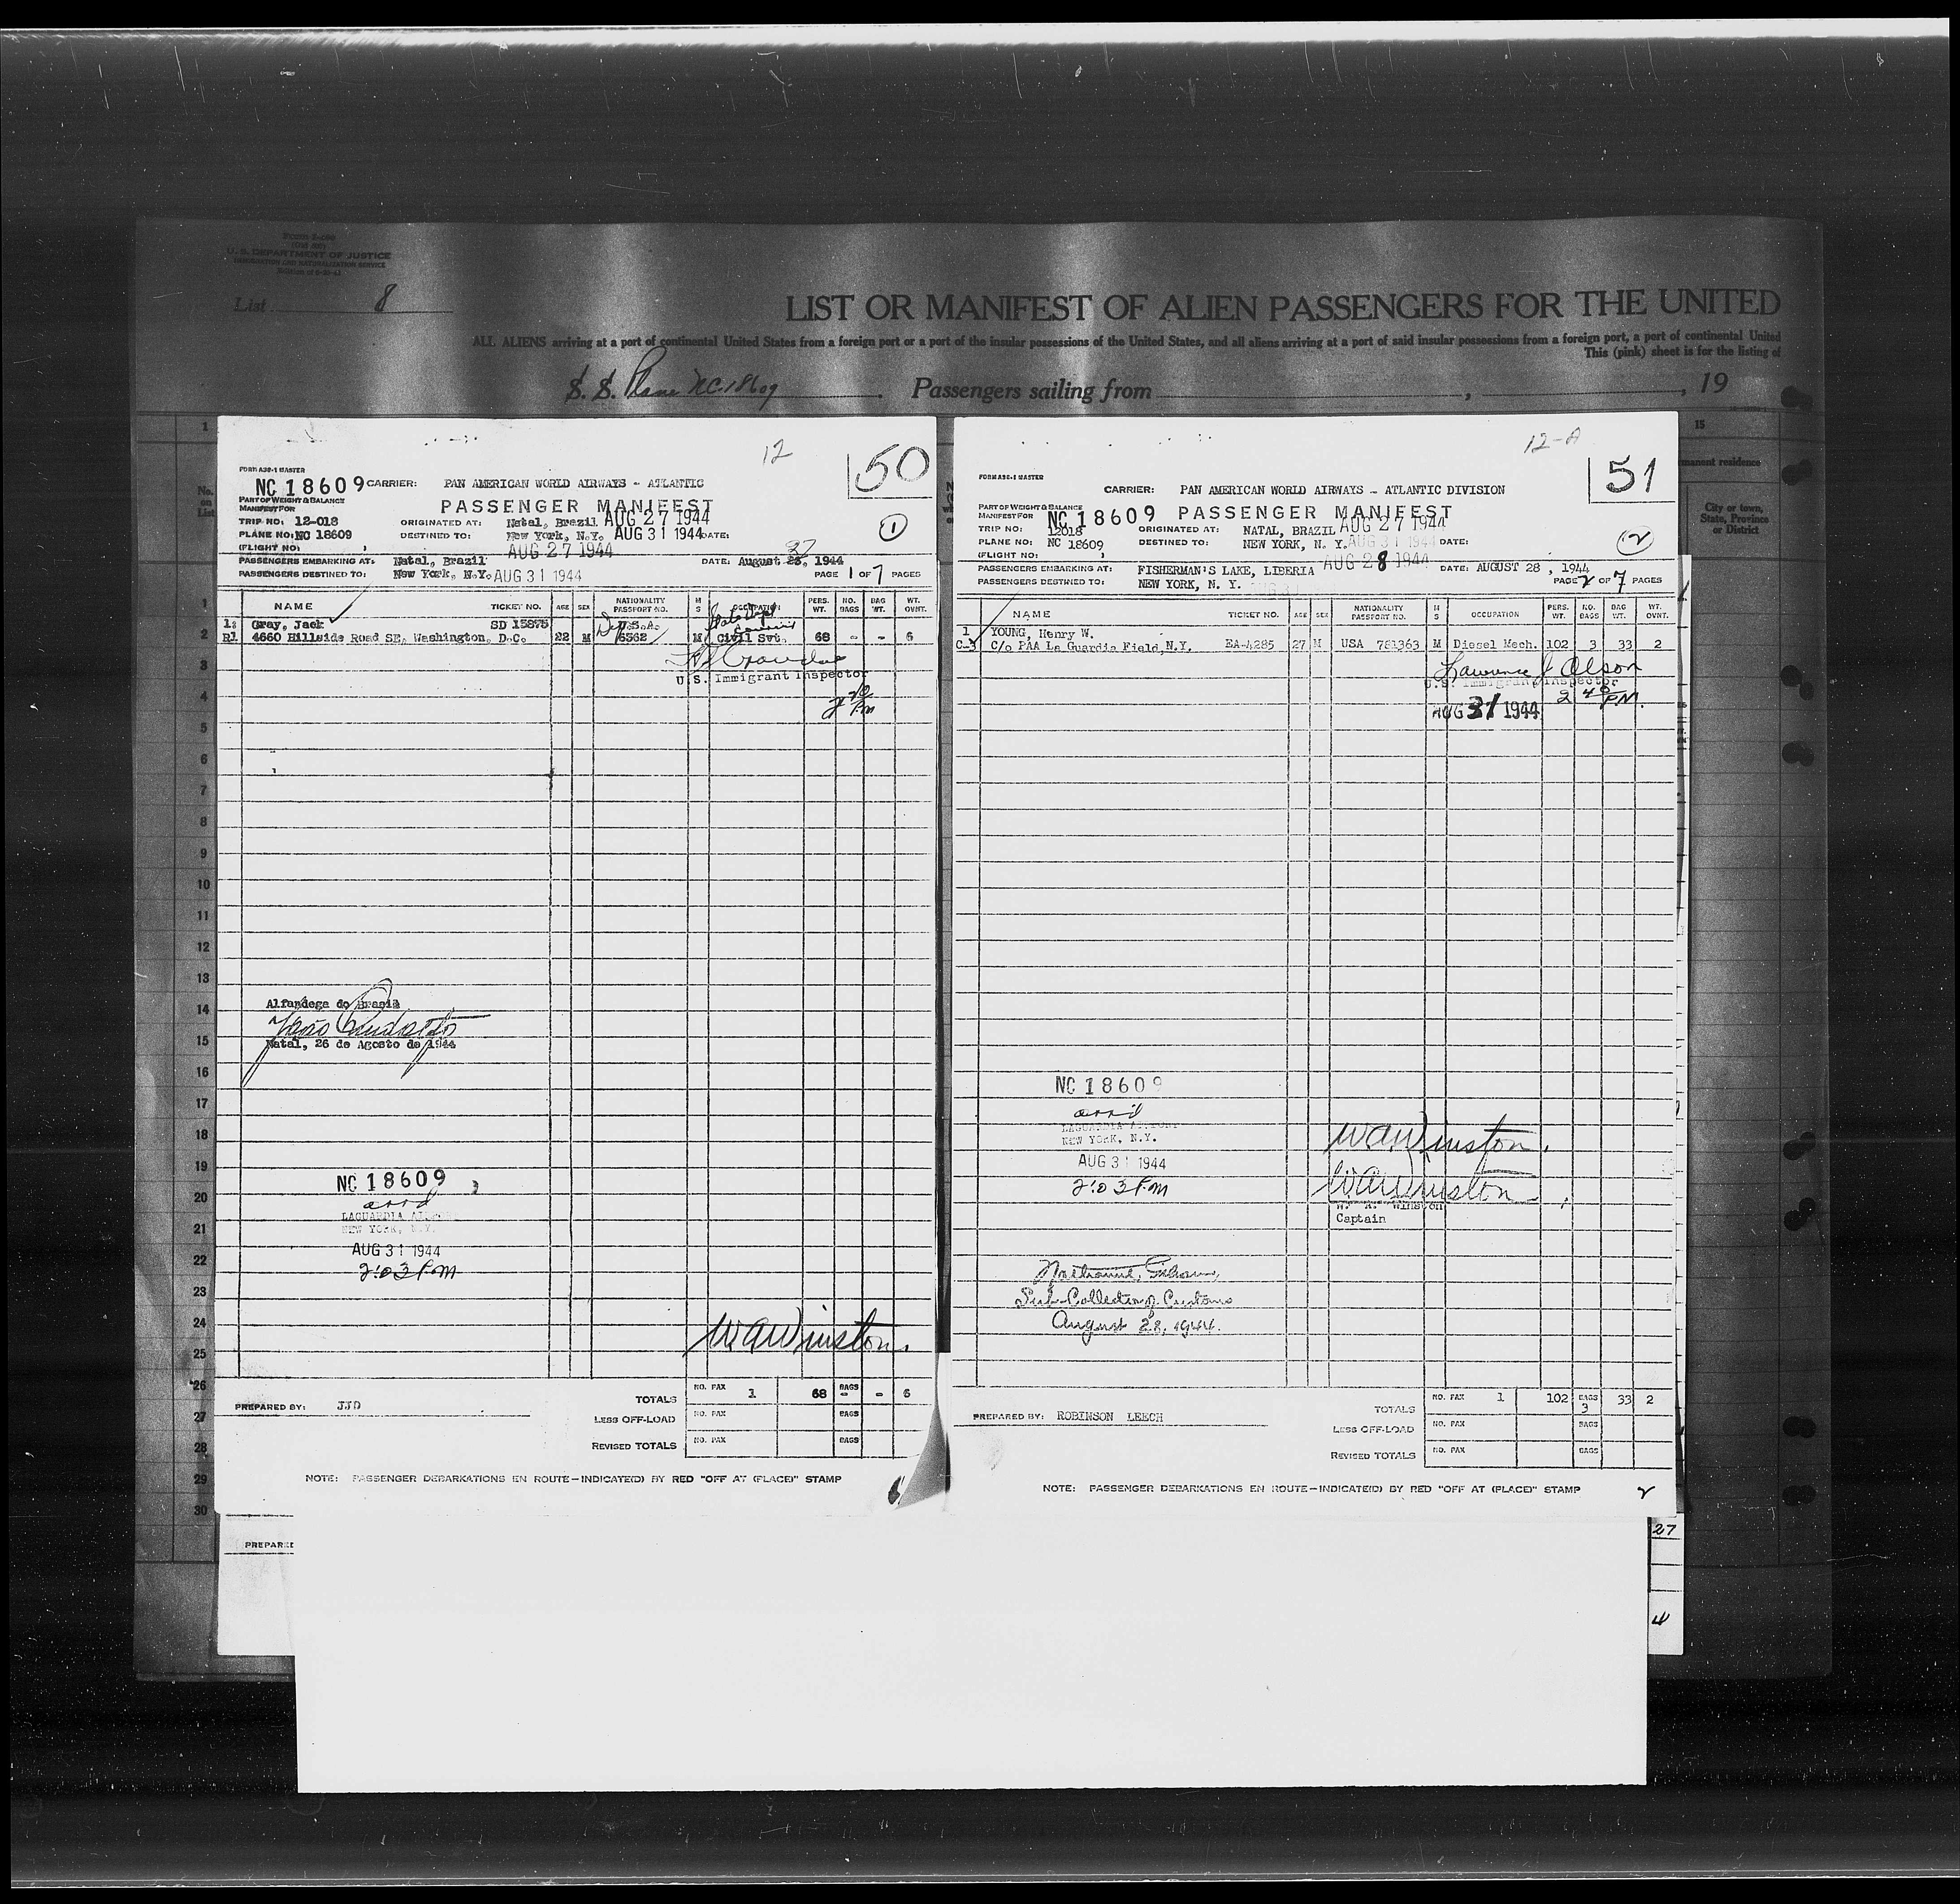 U. S. DEPARTMENT OF JUSTICE
IMMIGRATION AND NATURALIZATION SERVICE
List 8
LIST OR MANIFEST OF ALIEN PASSENGERS FOR THE UNITED
ALL ALIENS arriving at a port of continental United States from a foreign port or a port of the insular possessions of the United States, and all aliens arriving at a port of said insular possessions from a foreign port, a port of continental United
This (pink) sheet is for the listing of
S. S. Plane NC 18609 Passengers sailing from , , 19
12
50
FORM A30-1 MASTER
NC 18609 CARRIER: PAN AMERICAN WORLD AIRWAYS - ATLANTIC
PART OF WEIGHT & BALANCE
MANIFEST FOR
PASSENGER MANIFEST
TRIP NO: 12-018 ORIGINATED AT: Natal, Brazil AUG 27 1944
1
PLANE NO: NC 18609 DESTINED TO: New York, N.Y. AUG 31 1944 DATE:
(FLIGHT NO: ) AUG 27 1944
27
PASSENGERS EMBARKING AT: Natal, Brazil DATE: August 26, 1944
PASSENGERS DESTINED TO: New York, N.Y. AUG 31 1944 PAGE 1 OF 7 PAGES
NAME TICKET NO. AGE SEX NATIONALITY PASSPORT NO. M S OCCUPATION PERS. WT. NO. BAGS BAG WT. WT. OVNT.
State Dept
Gray, Jack SD 15875 U.S.A.
R1 4660 Hillside Road SE, Washington, D.C. 22 M 6362 M Civil Svt. 68 - - 6
U.S. Immigrant Inspector
2 20 PM
Alfandega do Brasil
Natal, 26 de Agosto de 1944
NC 18609
arrd
LAGUARDIA AIRPORT
NEW YORK, N.Y.
AUG 31 1944
2:03 P.M
WAWinston
TOTALS NO. PAX 1 68 BAGS - - 6
PREPARED BY: JJD
LESS OFF-LOAD NO. PAX BAGS
REVISED TOTALS NO. PAX BAGS
NOTE: PASSENGER DEBARKATIONS EN ROUTE—INDICATE(D) BY RED "OFF AT (PLACE)" STAMP
12-A
51
FORM A30-1 MASTER
CARRIER: PAN AMERICAN WORLD AIRWAYS - ATLANTIC DIVISION
PART OF WEIGHT & BALANCE
MANIFEST FOR NC 18609 PASSENGER MANIFEST
TRIP NO: 12018 ORIGINATED AT: NATAL, BRAZIL AUG 27 1944
2
PLANE NO: NC 18609 DESTINED TO: NEW YORK, N. Y. AUG 31 1944 DATE:
(FLIGHT NO: ) AUG 28 1944
PASSENGERS EMBARKING AT: FISHERMAN'S LAKE, LIBERIA DATE: AUGUST 28, 1944
PASSENGERS DESTINED TO: NEW YORK, N. Y. PAGE 2 OF 7 PAGES
NAME TICKET NO. AGE SEX NATIONALITY PASSPORT NO. M S OCCUPATION PERS. WT. NO. BAGS BAG WT. WT. OVNT.
1 YOUNG, Henry W.
C-3 C/o PAA La Guardia Field, N.Y. EA-4285 27 M USA 781363 M Diesel Mech. 102 3 33 2
Lawrence J Olson
U.S. Immigrant Inspector
2 40 PM.
AUG 31 1944
NC 18609
arrd
LAGUARDIA AIRPORT
NEW YORK, N.Y.
AUG 31 1944
2:03 P.M
WAWinston.
WAWinston
W. A. Winston
Captain
Sub-Collector of Customs
August 28, 1944.
TOTALS NO. PAX 1 102 BAGS 3 33 2
PREPARED BY: ROBINSON LEECH
LESS OFF-LOAD NO. PAX BAGS
REVISED TOTALS NO. PAX BAGS
NOTE: PASSENGER DEBARKATIONS EN ROUTE—INDICATE(D) BY RED "OFF AT (PLACE)" STAMP
2
No. on List
1
2
3
4
5
6
7
8
9
10
11
12
13
14
15
16
17
18
19
20
21
22
23
24
25
26
27
28
29
30
15
manent residence
City or town, State, Province or District
PREPARE
27
4